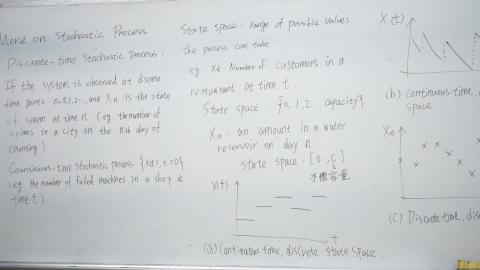 More on Stochastic Process.
Discrete-time Stochastic Process:
If the system is observed at discrete
time points n=0,1,2..., and Xn is the state
of system at time n. (eg. the number of
crimes in a city on the nth day of
counting)
Countinuous-time stochastic process, {X(t), t≥0}
(eg. the number of failed machines in a shop at
time t)
State space: range of possible values
the process can take.
eg Xt Number of customers in a
restaurant at time t.
State space: {0,1,2...capacity}
Xn: an amount in a water
reservoir on day n.
State space: [0,C]
水櫃容量
X(t)
t
(a) Continuous time, discrete state space.
X(t)
(b) continuous-time,
space
Xn
(C) Discrete time, dis